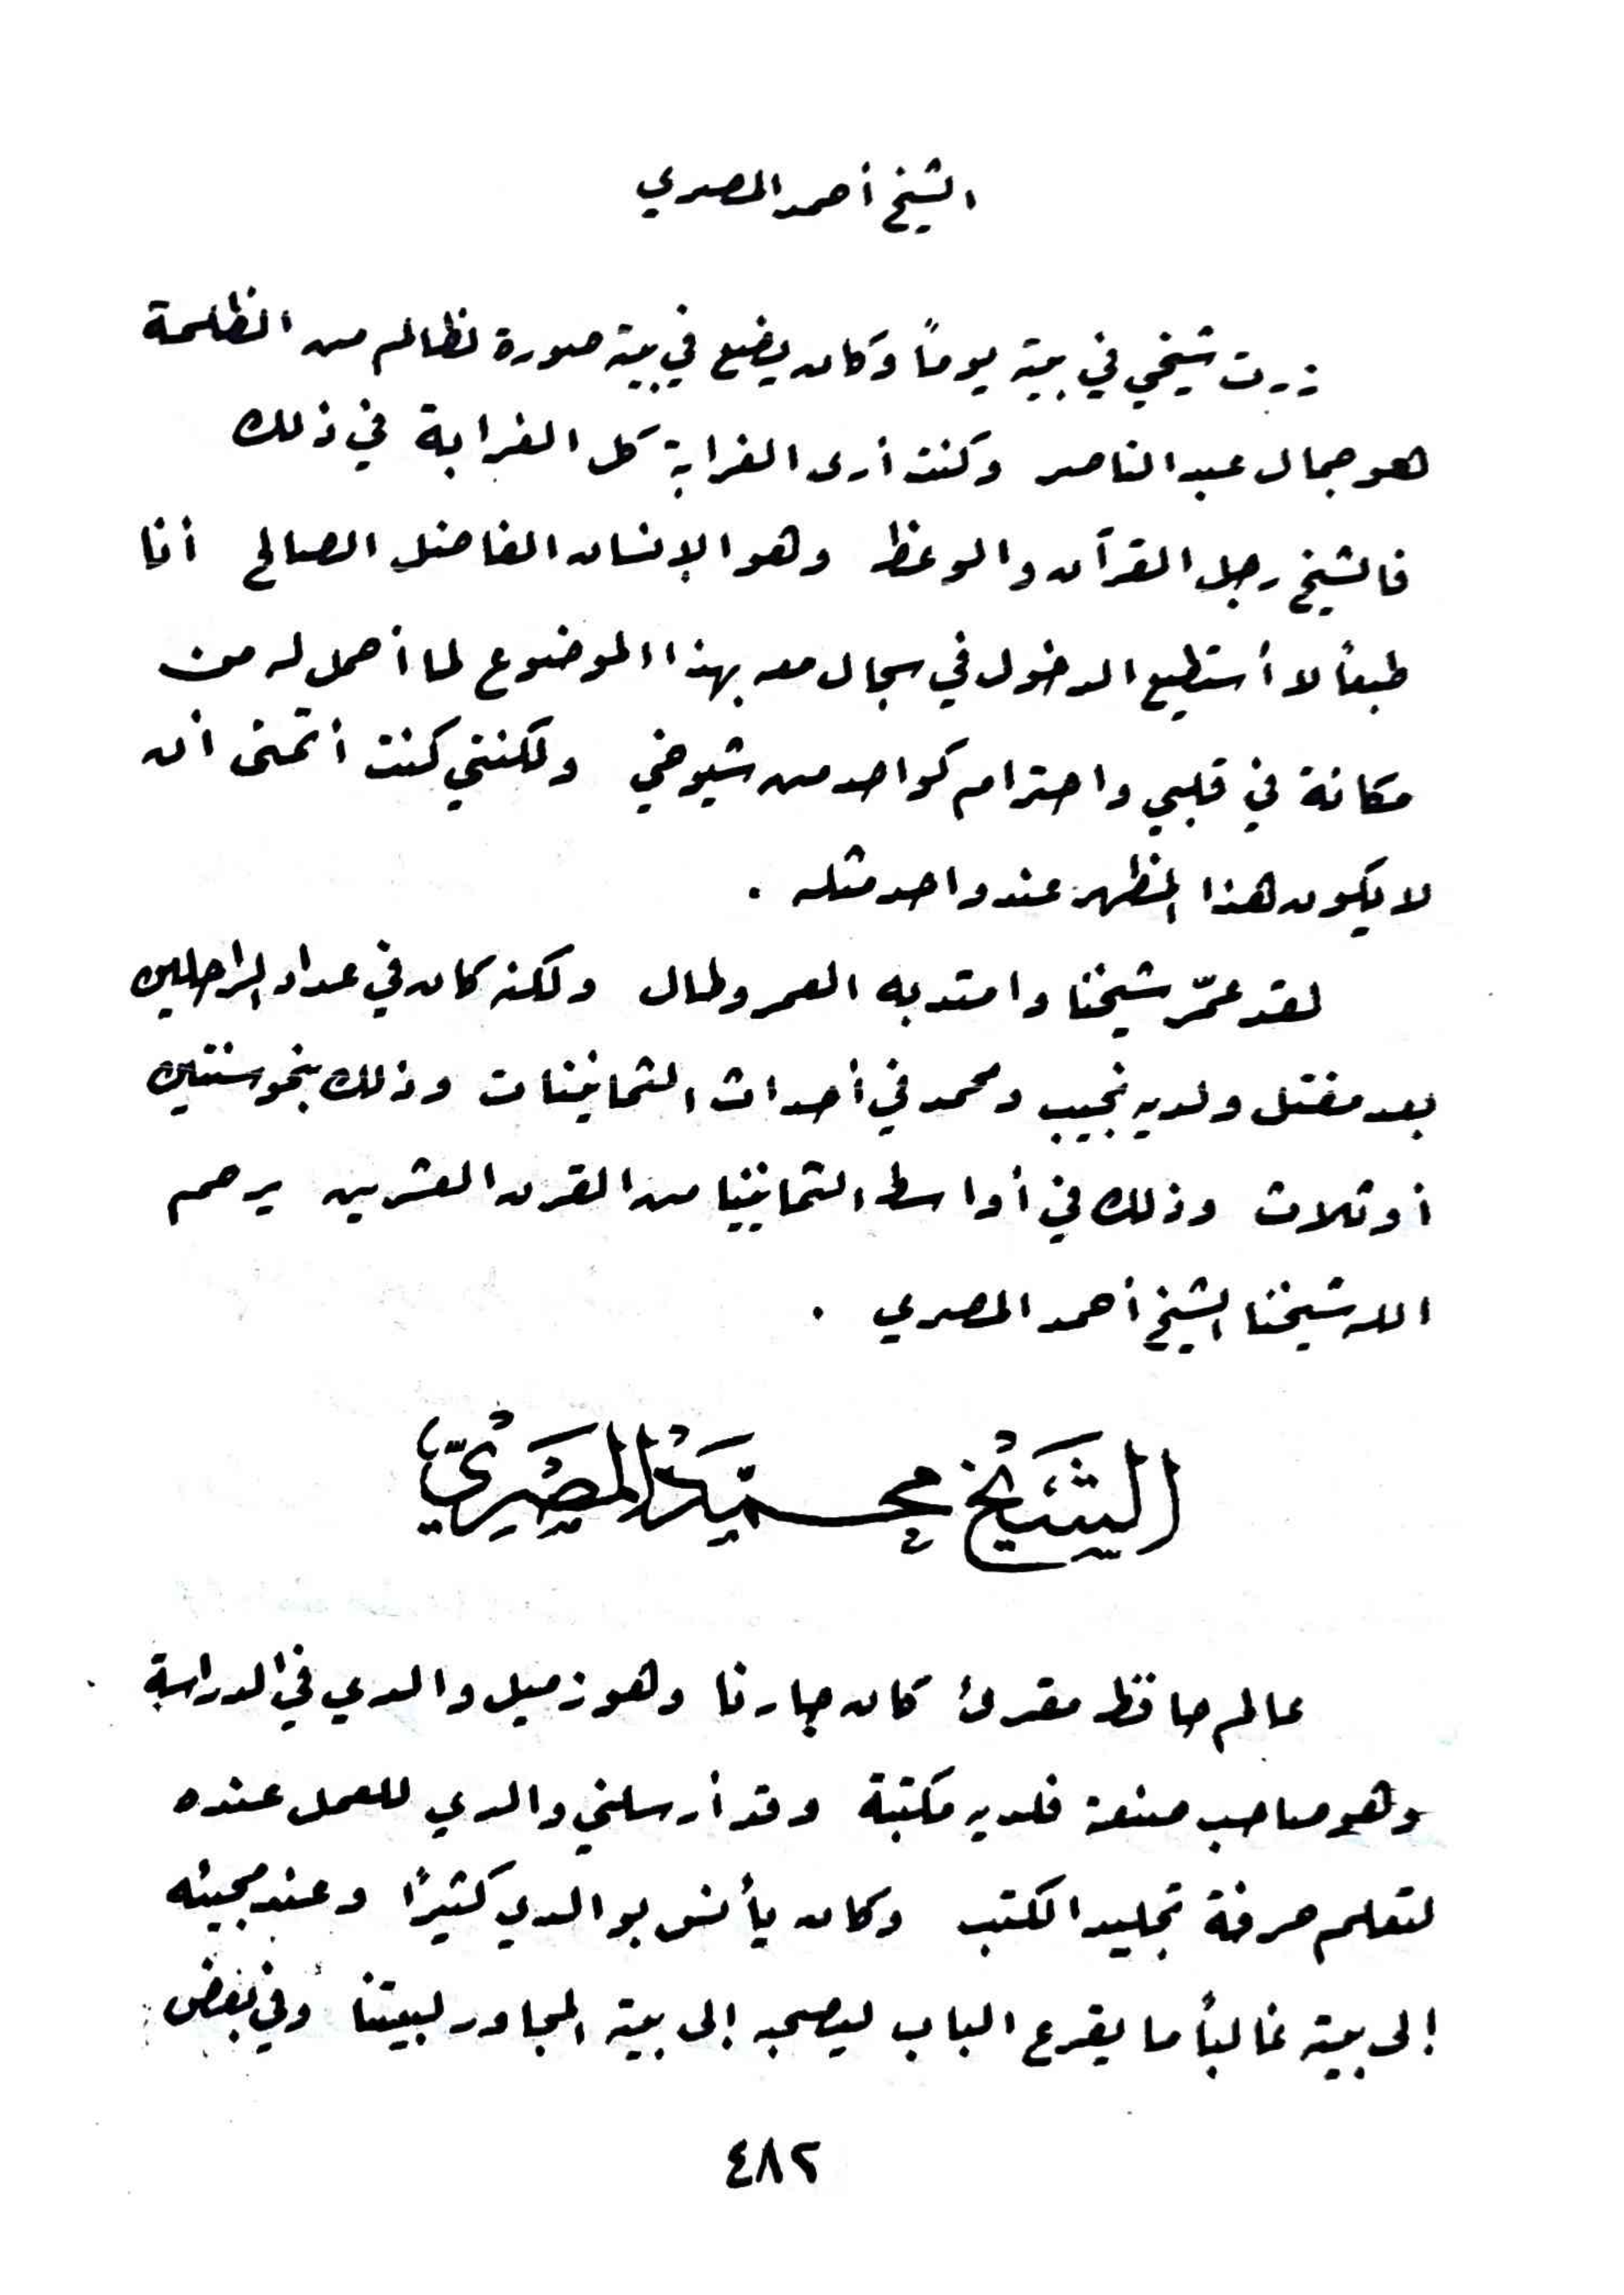 الشيخ أحمد المصري
زرت شيخي في بيته يوماً وكان يضع في بيته صورة لظالم من الظلمة
هو جمال عبد الناصر وكنت أرى الغرابة كل الغرابة في ذلك
فالشيخ رجل القرآن والوعظ وهو الإنسان الفاضل الصالح أنا
طبعاً لا أستطيع الدخول في سجال معه بهذا الموضوع لما أحمل له من
مكانة في قلبي واحترام كواحد من شيوخي ولكنني كنت أتمنى أن
لا يكون هذا المظهر عند واحد مثله .
لقد عمّر شيخنا وامتد به العمر وطال ولكنه كان في عداد الراحلين
بعد مقتل ولديه نجيب ومحمد في أحداث الثمانينات وذلك بنحو سنتين
أو ثلاث وذلك في أواسط الثمانينيا من القرن العشرين يرحم
الله شيخنا الشيخ أحمد المصري .
الشَّيْخ محمَّد المصْرِيّ
عالم حافظ مقرئ كان جارنا وهو زميل والدي في الدراسة
وهو صاحب صنعة فلديه مكتبة وقد أرسلني والدي للعمل عنده
لتعلم حرفة تجليد الكتب وكان يأنس بوالدي كثيرًا وعند مجيئه
إلى بيته غالباً ما يقرع الباب ليصحبه إلى بيته المجاور لبيتنا وفي بعض
٤٨٢